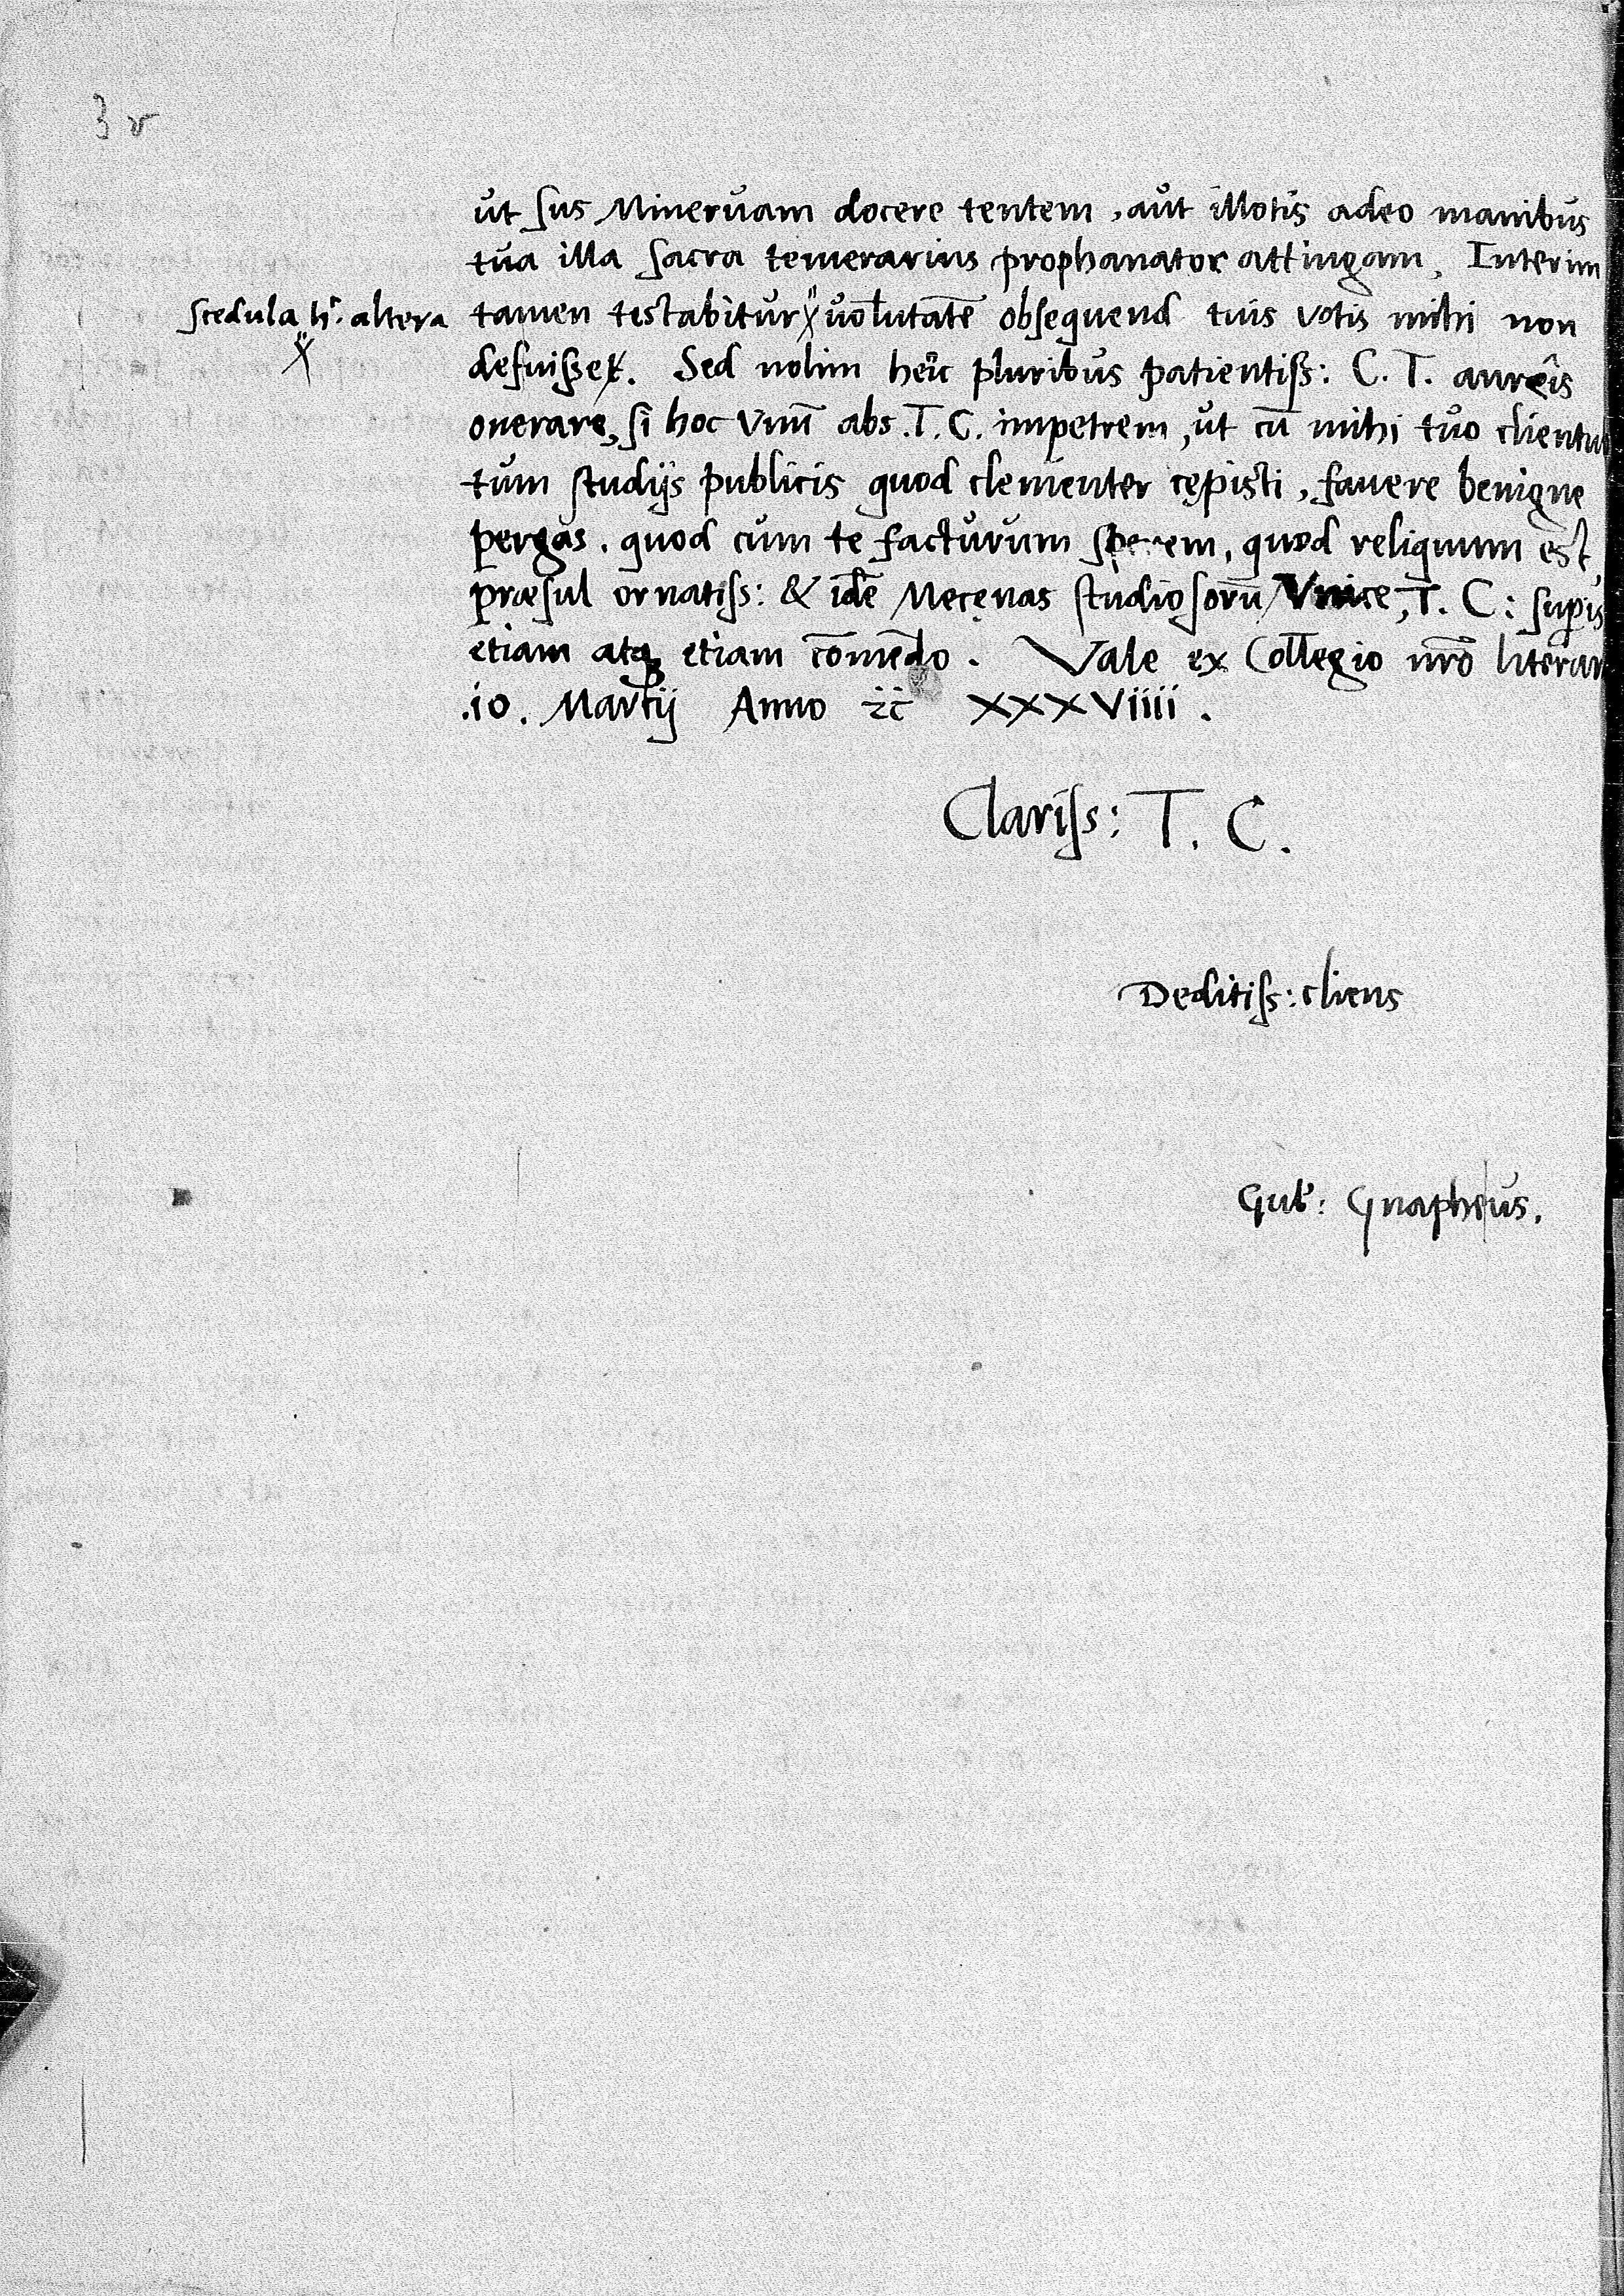 3 v
ut sus Mineruam docere tentem, aut illotis adeo manibus
tua illa sacra temerarius prophanator attingam. Interim
scedula hˀ. altera
tamen testabitur uolūtatē obsequend tuis votis mihi non
defuisse. Sed nolim heic pluribus patientiss: C. T. aureis
onerare, si hoc vnū abs .T. C. impetrem, ut cū mihi tuo clientu
tum studijs publicis quod clementer cępisti, fauere benigne
pergas. quod cum te facturum sperem, quod reliquum est,
præsul ornatiss: & idē Mecęnas studiosorū Vnice, T. C: supis
etiam atq; etiam cōmēdo. Vale ex Collegio nr̄o literar
.10. Martij Anno &c XXXViiii.
Clariss: T. C.
Deditiss: cliens
Guł: Gnapheus.